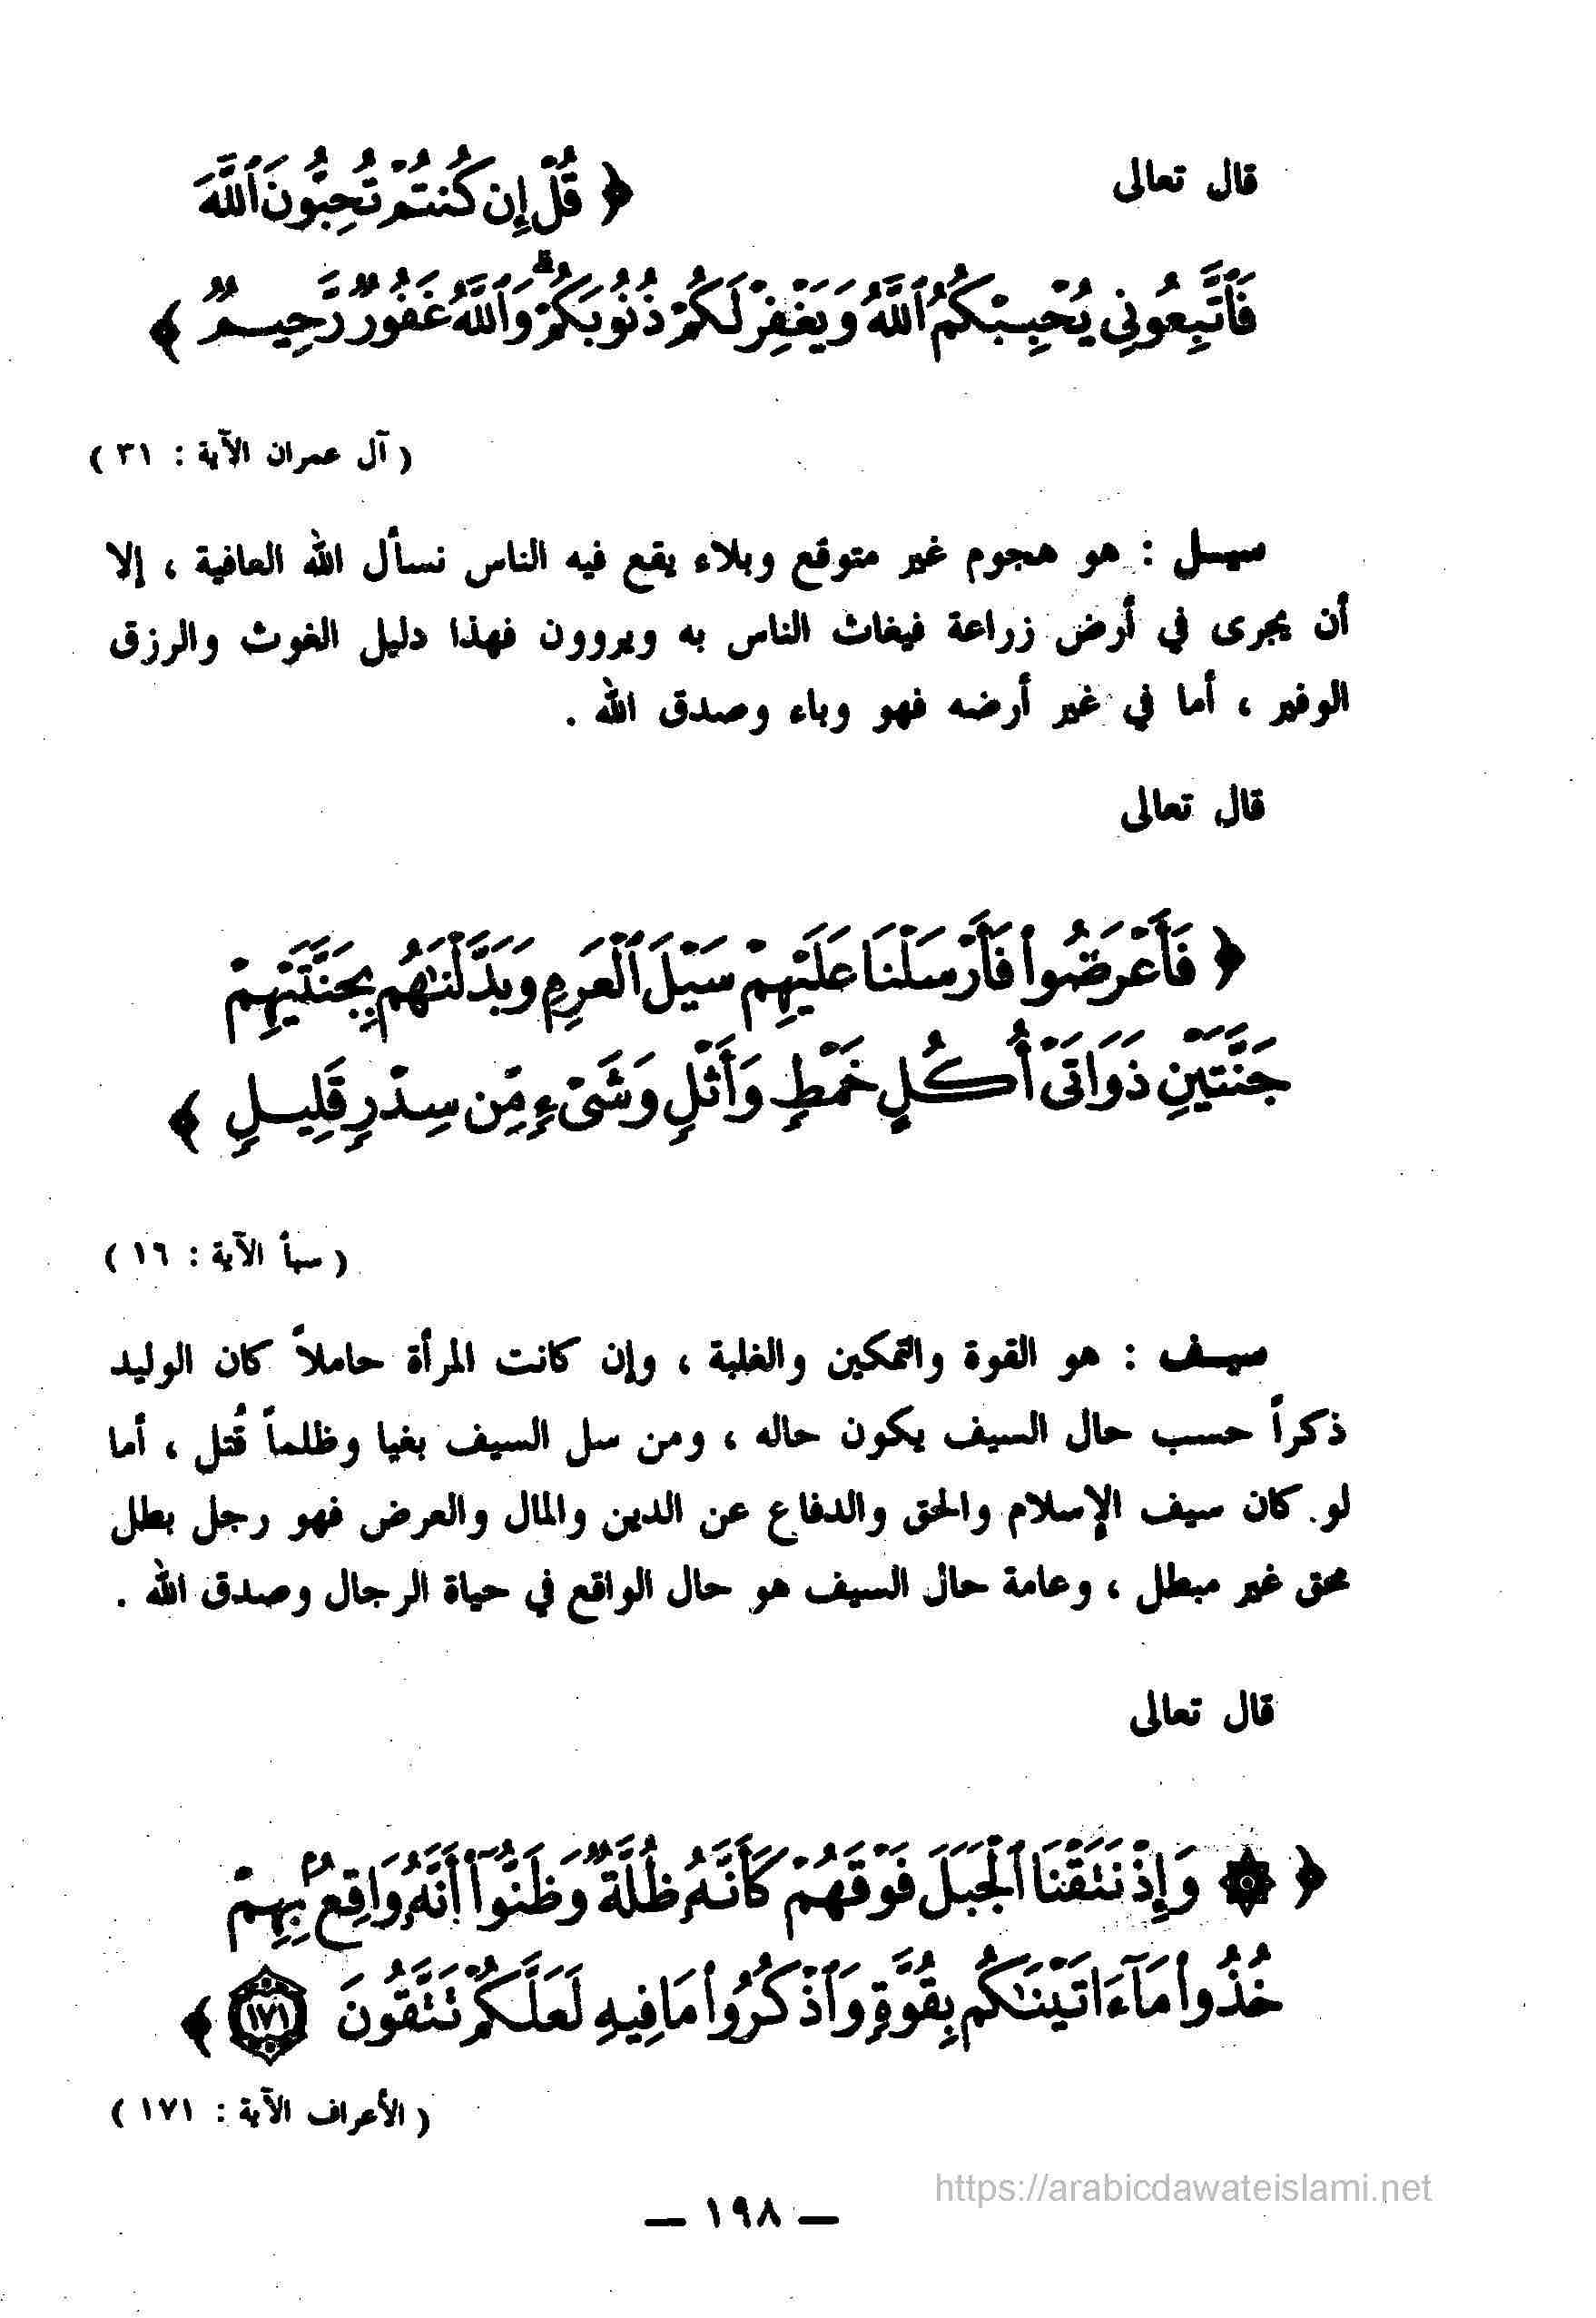 قال تعالى ﴿ قُلْ إِن كُنتُمْ تُحِبُّونَ ٱللَّهَ
فَٱتَّبِعُونِى يُحْبِبْكُمُ ٱللَّهُ وَيَغْفِرْ لَكُمْ ذُنُوبَكُمْ ۗ وَٱللَّهُ غَفُورٌ رَّحِيمٌ ﴾
( آل عمران الآية : ٣١ )
سيل : هو هجوم غير متوقع وبلاء يقع فيه الناس نسأل الله العافية ، إلا
أن يجرى في أرض زراعة فيغاث الناس به ويروون فهذا دليل الغوث والرزق
الوفير ، أما في غير أرضه فهو وباء وصدق الله .
قال تعالى
﴿ فَأَعْرَضُوا۟ فَأَرْسَلْنَا عَلَيْهِمْ سَيْلَ ٱلْعَرِمِ وَبَدَّلْنَٰهُم بِجَنَّتَيْهِمْ
جَنَّتَيْنِ ذَوَاتَىْ أُكُلٍ خَمْطٍ وَأَثْلٍ وَشَىْءٍ مِّن سِدْرٍ قَلِيلٍ ﴾
( سبأ الآية : ١٦ )
سيف : هو القوة والتمكين والغلبة ، وإن كانت المرأة حاملاً كان الوليد
ذكراً حسب حال السيف يكون حاله ، ومن سل السيف بغيا وظلماً قُتل ، أما
لو كان سيف الإسلام والحق والدفاع عن الدين والمال والعرض فهو رجل بطل
محق غير مبطل ، وعامة حال السيف هو حال الواقع في حياة الرجال وصدق الله .
قال تعالى
﴿ ۞ وَإِذْ نَتَقْنَا ٱلْجَبَلَ فَوْقَهُمْ كَأَنَّهُۥ ظُلَّةٌ وَظَنُّوٓا۟ أَنَّهُۥ وَاقِعٌۢ بِهِمْ
خُذُوا۟ مَآ ءَاتَيْنَٰكُم بِقُوَّةٍ وَٱذْكُرُوا۟ مَا فِيهِ لَعَلَّكُمْ تَتَّقُونَ ١٧١ ﴾
( الأعراف الآية : ١٧١ )
https://arabicdawateislami.net
— ١٩٨ —